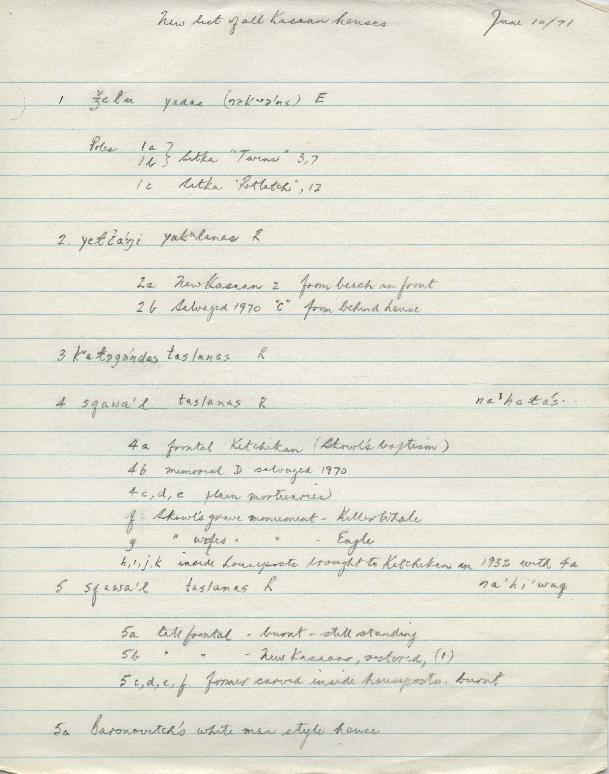 New list of all Kasaan houses June 10/71
1 yadas E
Poles 1a }
1b } Sitka "Twins" 3,7
1c Sitka "Potlatch", 12
2. yakʷlanas R
2a New Kasaan 2 from beach in front
2b Salvaged 1970 "C" from behind house
3 taslanas R
4 sgawa'l taslanas R
4a frontal Ketchikan (Skowl's baptism)
4b memorial D salvaged 1970
4c, d, e plain mortuaries)
f Skowl's grave monument - Killer Whale
g " wife's " " - Eagle
h, i, j, k inside houseposts brought to Ketchikan in 1932 with 4a
5 sgawa'l taslanas R na'hi'waq
5a tall frontal - burnt - still standing
5b " " - New Kasaan, restored, (1)
5c, d, e, f. former carved inside houseposts. burnt
5a Baronovitch's white man style house